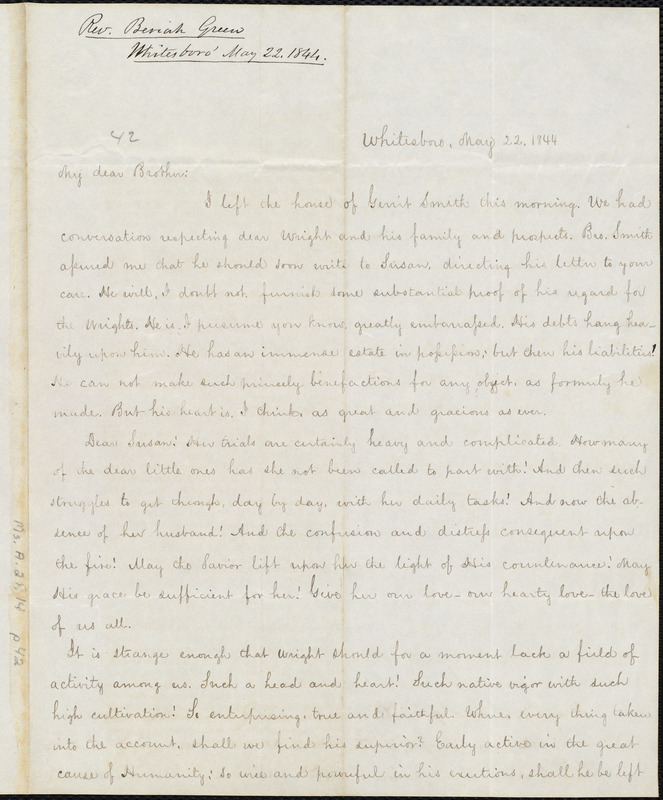 Rev. Beriah Green
Whitesboro' May 22. 1844.
42
Whitesboro, May 22. 1844
My dear Brother:
I left the house of Gerrit Smith this morning. We had
conversation respecting dear Wright and his family and prospects. Bro. Smith
assured me that he should soon write to Susan, directing his letter to your
care. He will, I doubt not, furnish some substantial proof of his regard for
the Wrights. He is, I presume you know, greatly embarrassed. His debts hang hea-
vily upon him. He has an immense estate in possession; but then his liabilities!
He can not make such princely benefactions for any object, as formerly he
made. But his heart is, I think, as great and gracious as ever.
Dear Susan! Her trials are certainly heavy and complicated. How many
of the dear little ones has she not been called to part with! And then such
struggles to get through, day by day, with her daily tasks! And now the ab-
sence of her husband! And the confusion and distress consequent upon
the fire! May the Savior lift upon her the light of His countenance! May
His grace be sufficient for her! Give her our love - our hearty love - the love
of us all.
It is strange enough that Wright should for a moment lack a field of
activity among us. Such a head and heart! Such native vigor with such
high cultivation! So enterprising, true and faithful. Where, every thing taken
into the account, shall we find his superior? Early active in the great
cause of Humanity; so wise and powerful in his exertions, shall he be left
Ms. A. 2. 1. 14 p 42